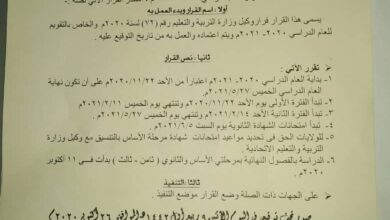 أولاً : اسم القرار وبدء العمل به
يسمى هذا القرار قرار وكيل وزارة التربية والتعليم رقم (٧٢) لسنة ٢٠٢٠م والخاص بالتقويم
للعام الدراسي ٢٠٢٠- ٢٠٢١م ويتم اعتماده والعمل به من تاريخ التوقيع عليه .
ثانياً - نص القرار
تقرر الآتي :
١- بداية العام الدراسي ٢٠٢٠-٢٠٢١م اعتباراً من الأحد ٢٠٢٠/١١/٢٢م على أن تكون نهاية
العام الدراسي الخميس ٢٠٢١/٥/٢٧م
٢- تبدأ الفترة الأولى يوم الأحد ٢٠٢٠/١١/٢٢م وتنتهي يوم الخميس ٢٠٢١/٢/١١م
٣- تبدأ الفترة الثانية الأحد ٢٠٢١/٢/١٤م وتنتهي الخميس ٢٠٢١/٥/٢٧م
٤- تبدأ امتحانات الشهادة الثانوية يوم السبت ٢٠٢١/٦/٥م
٥- للولايات الحق في تحديد مواعيد امتحانات شهادة مرحلة الأساس بالتنسيق مع وكيل وزارة
التربية والتعليم الاتحادية .
٦- الدراسة بالفصول النهائية بمرحلتي الأساس والثانوي ( ثامن - ثالث ) بدأت في ١١ أكتوبر
٢٠٢٠م
ثالثاً: التنفيذ
على الجهات ذات الصلة وضع القرار موضع التنفيذ .